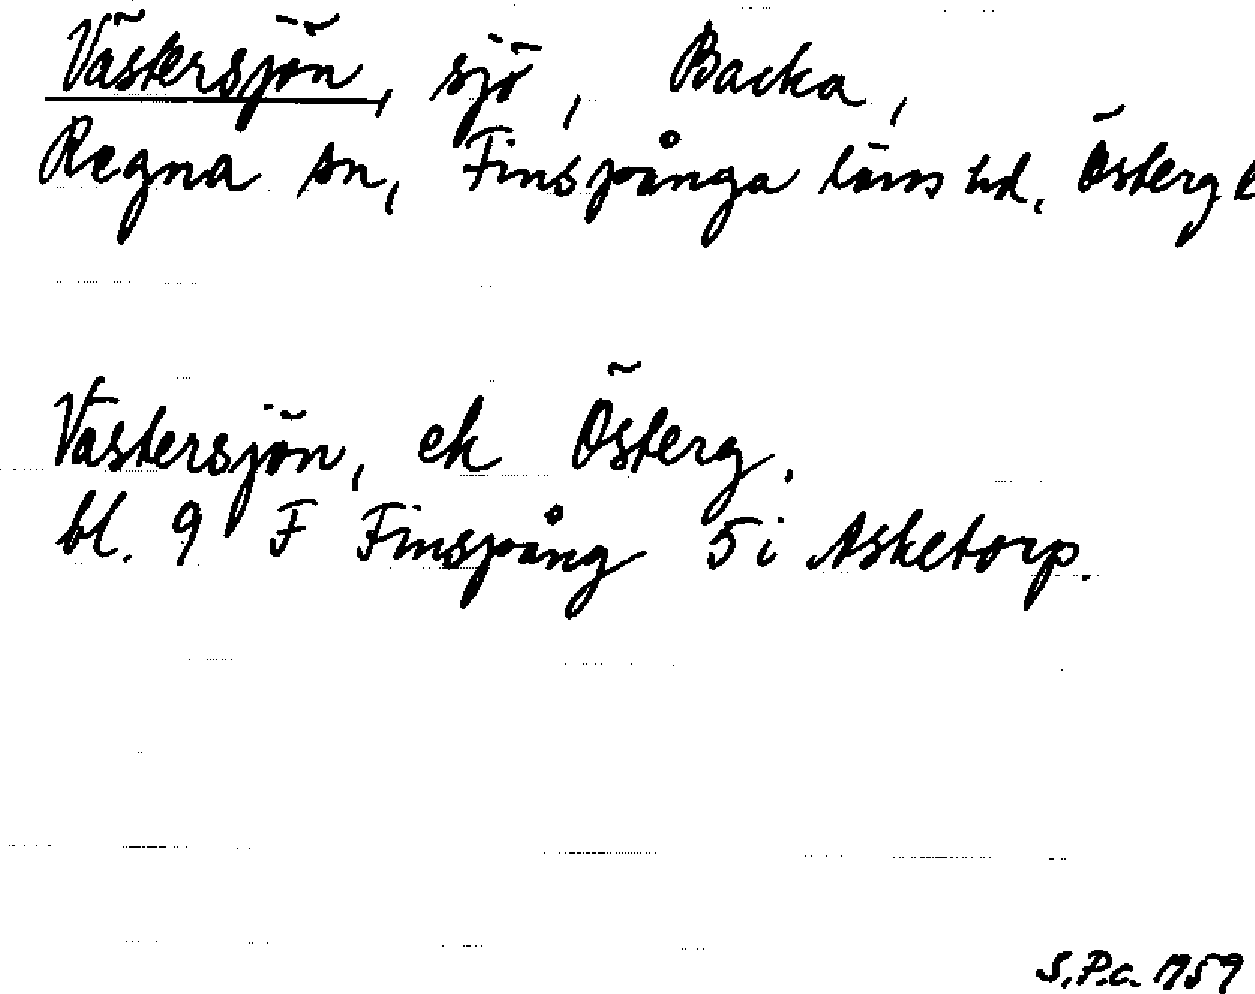 Västersjön, sjö, Backa,
Regna sn, Finspånga läns hd, Österg
Västersjön, ek Österg.
bl. 9 F Finspång 5 i Asketorp.
S.P.c. 1959